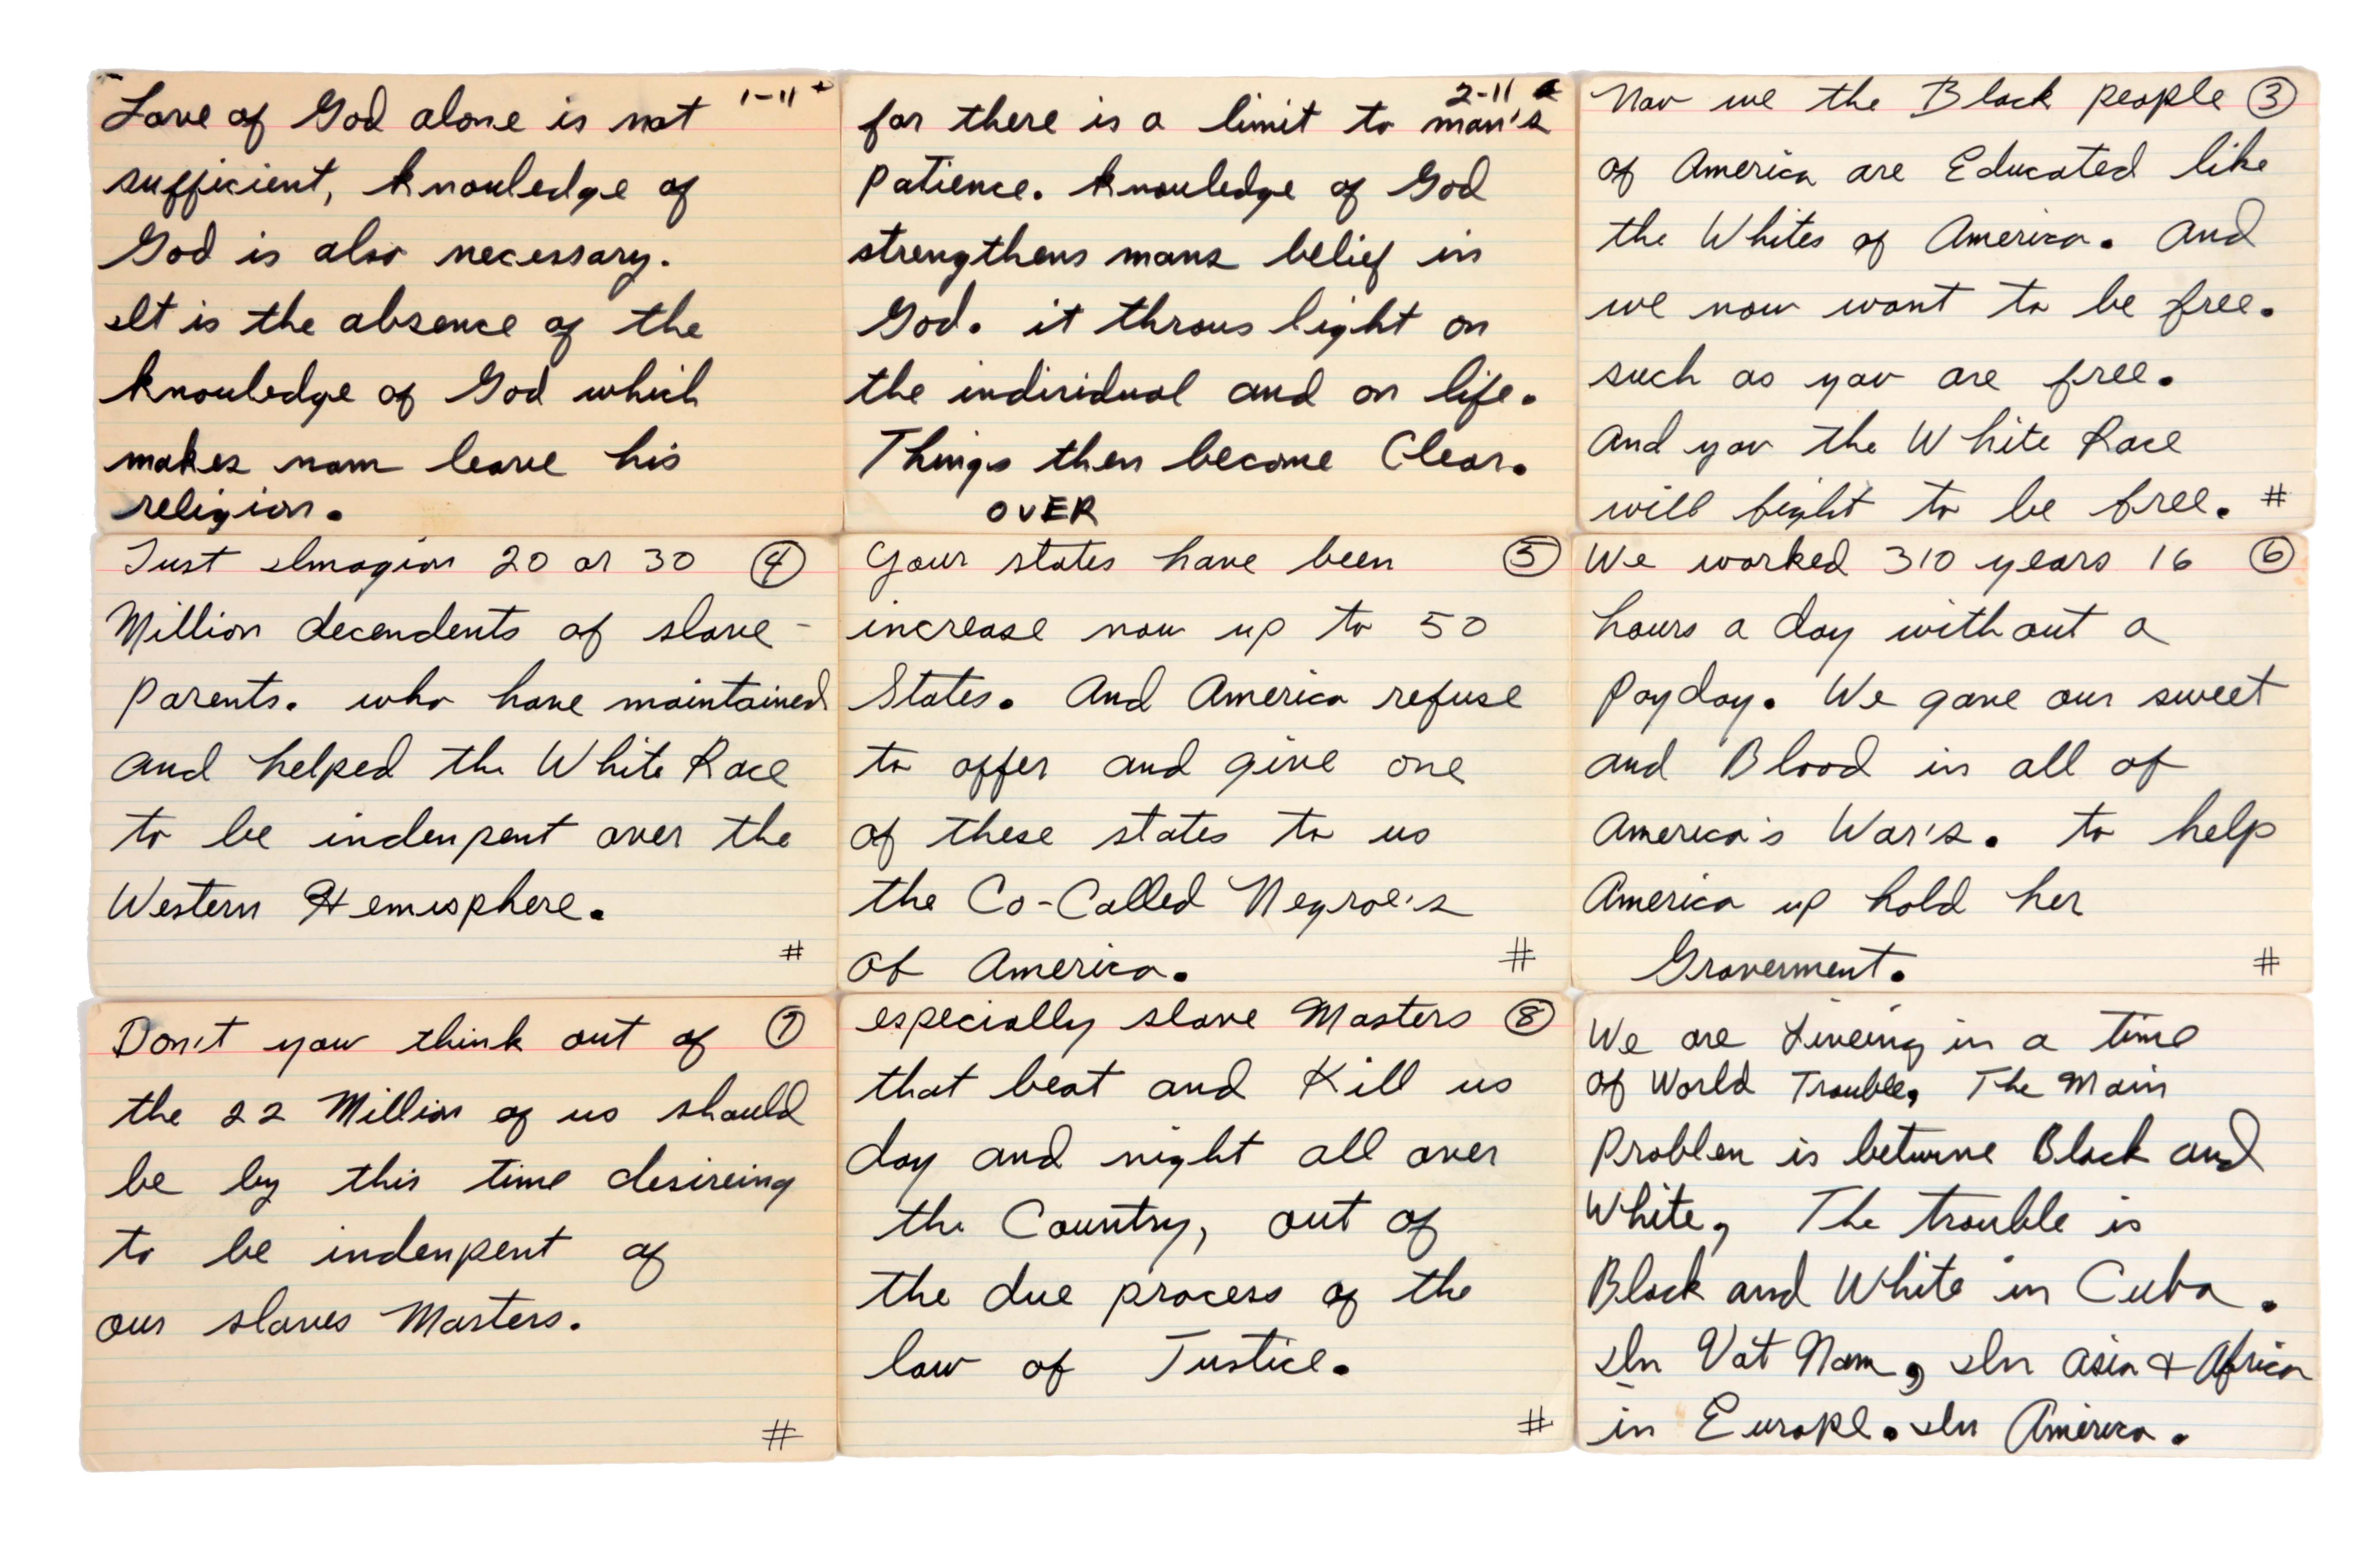 Love of God alone is not 1-11
sufficient, knowledge of
God is also necessary.
It is the absence of the
knowledge of God which
makes nam leave his
religion.
2-11
for there is a limit to man's
patience. knowledge of God
strengthens mans belief in
God. it throws light on
the individual and on life.
Things then become Clear.
OVER
Nov we the Black people ③
of America are Educated like
the Whites of America. And
we now want to be free.
such as yov are free.
And yov the White Race
will fight to be free. #
Just Imagion 20 or 30 ④
Million decendents of slave-
Parents. who have maintained
and helped the White Race
to be indenpent over the
Western Hemisphere.
#
Your states have been ⑤
increase now up to 50
States. And America refuse
to offer and give one
of these states to us
the Co-Called Negroe's
of America. #
We worked 310 years 16 ⑥
hours a day without a
Payday. We gave our sweet
and Blood in all of
America's War's. to help
America up hold her
Graverment. #
Don't yow think out of ⑦
the 22 Million of us should
be by this time desireing
to be indenpent of
our slaves Masters.
#
especially slave Masters ⑧
that beat and Kill us
day and night all over
the Country, out of
the due process of the
law of Justice.
#
We are Liveing in a time
of World Trouble, The Main
Problem is betwene Black and
White, The trouble is
Black and White in Cuba.
In Vat Nam, In Asia & Africa
in Europe. In America.